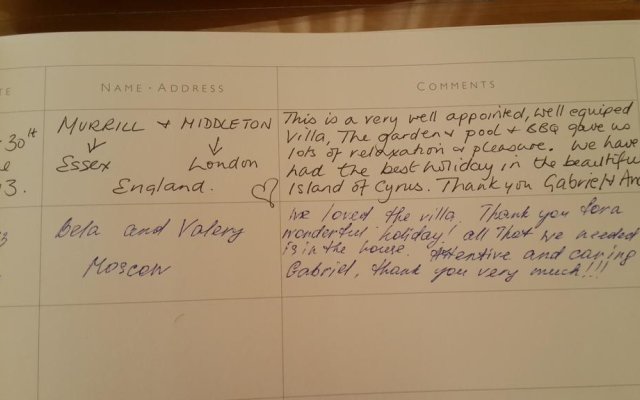 TE
NAME · ADDRESS
COMMENTS
30th
MURRILL & MIDDLETON
Essex London
England.
3.
This is a very well appointed, well equiped
Villa, The garden & pool & BBQ gave us
lots of relaxation & pleasure. We have
had the best holiday in the beautiful
Island of Cyrus. Thank you Gabriel
3
Bela and Valery
Moscow
We loved the villa. Thank you for a
wonderful holiday! all that we needed
is in the house. Attentive and caring
Gabriel, thank you very much!!!